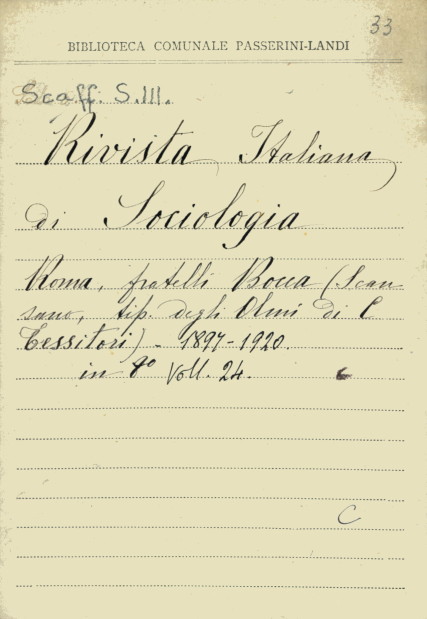 33
BIBLIOTECA COMUNALE PASSERINI-LANDI
Scaff. S.III.
Rivista Italiana
di Sociologia
Roma, fratelli Bocca (Scan
sano, tip. degli Olmi di C
Tessitori) - 1897-1920.
in 8° Voll. 24.
C